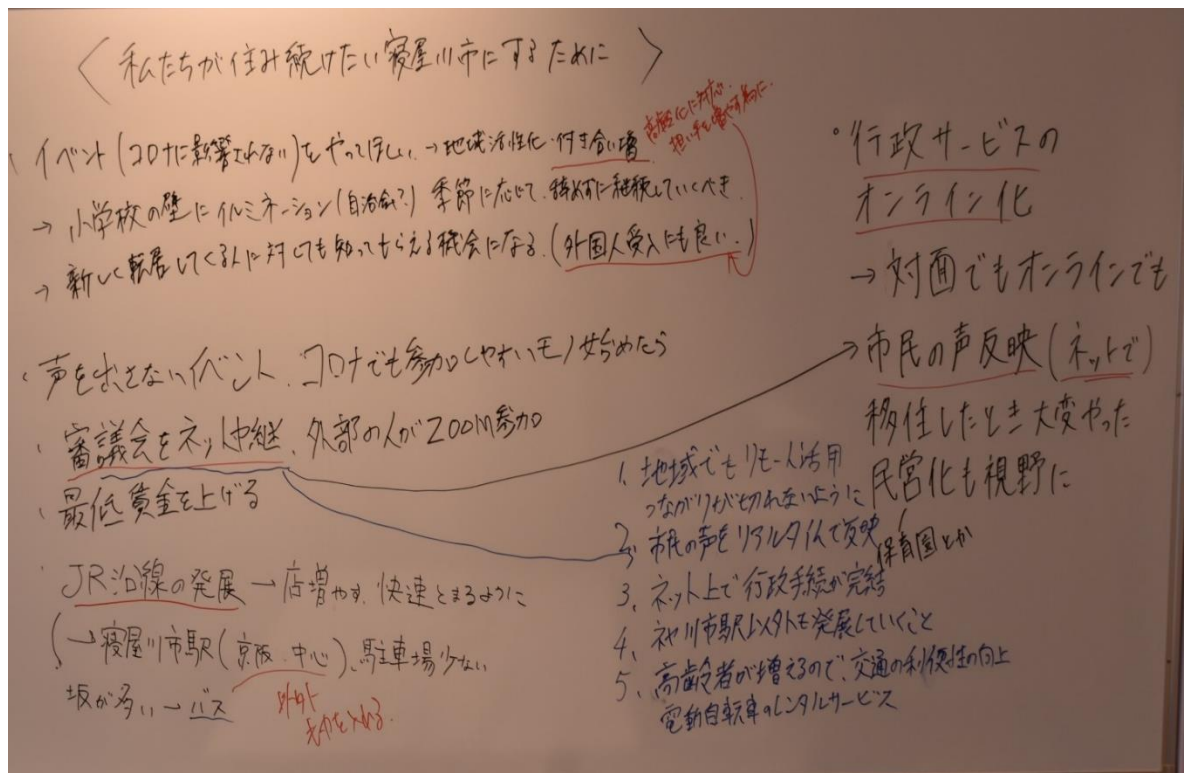 〈 私たちが住み続けたい寝屋川市にするために 〉
・イベント(コロナに影響されない)をやってほしい→地域活性化・付き合い増
高齢化に対応
担い手を増やす為に
→ 小学校の壁にイルミネーション(自治会?) 季節に応じて、辞めずに継続していくべき
→ 新しく転居してくる人に対しても知ってもらえる機会になる。(外国人受入にも良い。)
・声を出さないイベント、コロナでも参加しやすいモノ始めたら
・審議会をネット中継、外部の人がZOOM参加
・最低賃金を上げる
・JR沿線の発展 → 店増やす、快速とまるように
(→寝屋川市駅(京阪・中心)、駐車場少ない
坂が多い→バス
以外
力を入れる。
・行政サービスの
オンライン化
→ 対面でもオンラインでも
→ 市民の声反映(ネットで)
移住したとき大変やった
民営化も視野に
保育園とか
1. 地域でもリモート活用
つながりが切れないように
2. 市民の声をリアルタイムで反映
3. ネット上で行政手続が完結
4. 市駅以外も発展していくこと
5. 高齢者が増えるので、交通の利便性の向上
電動自転車のレンタルサービス